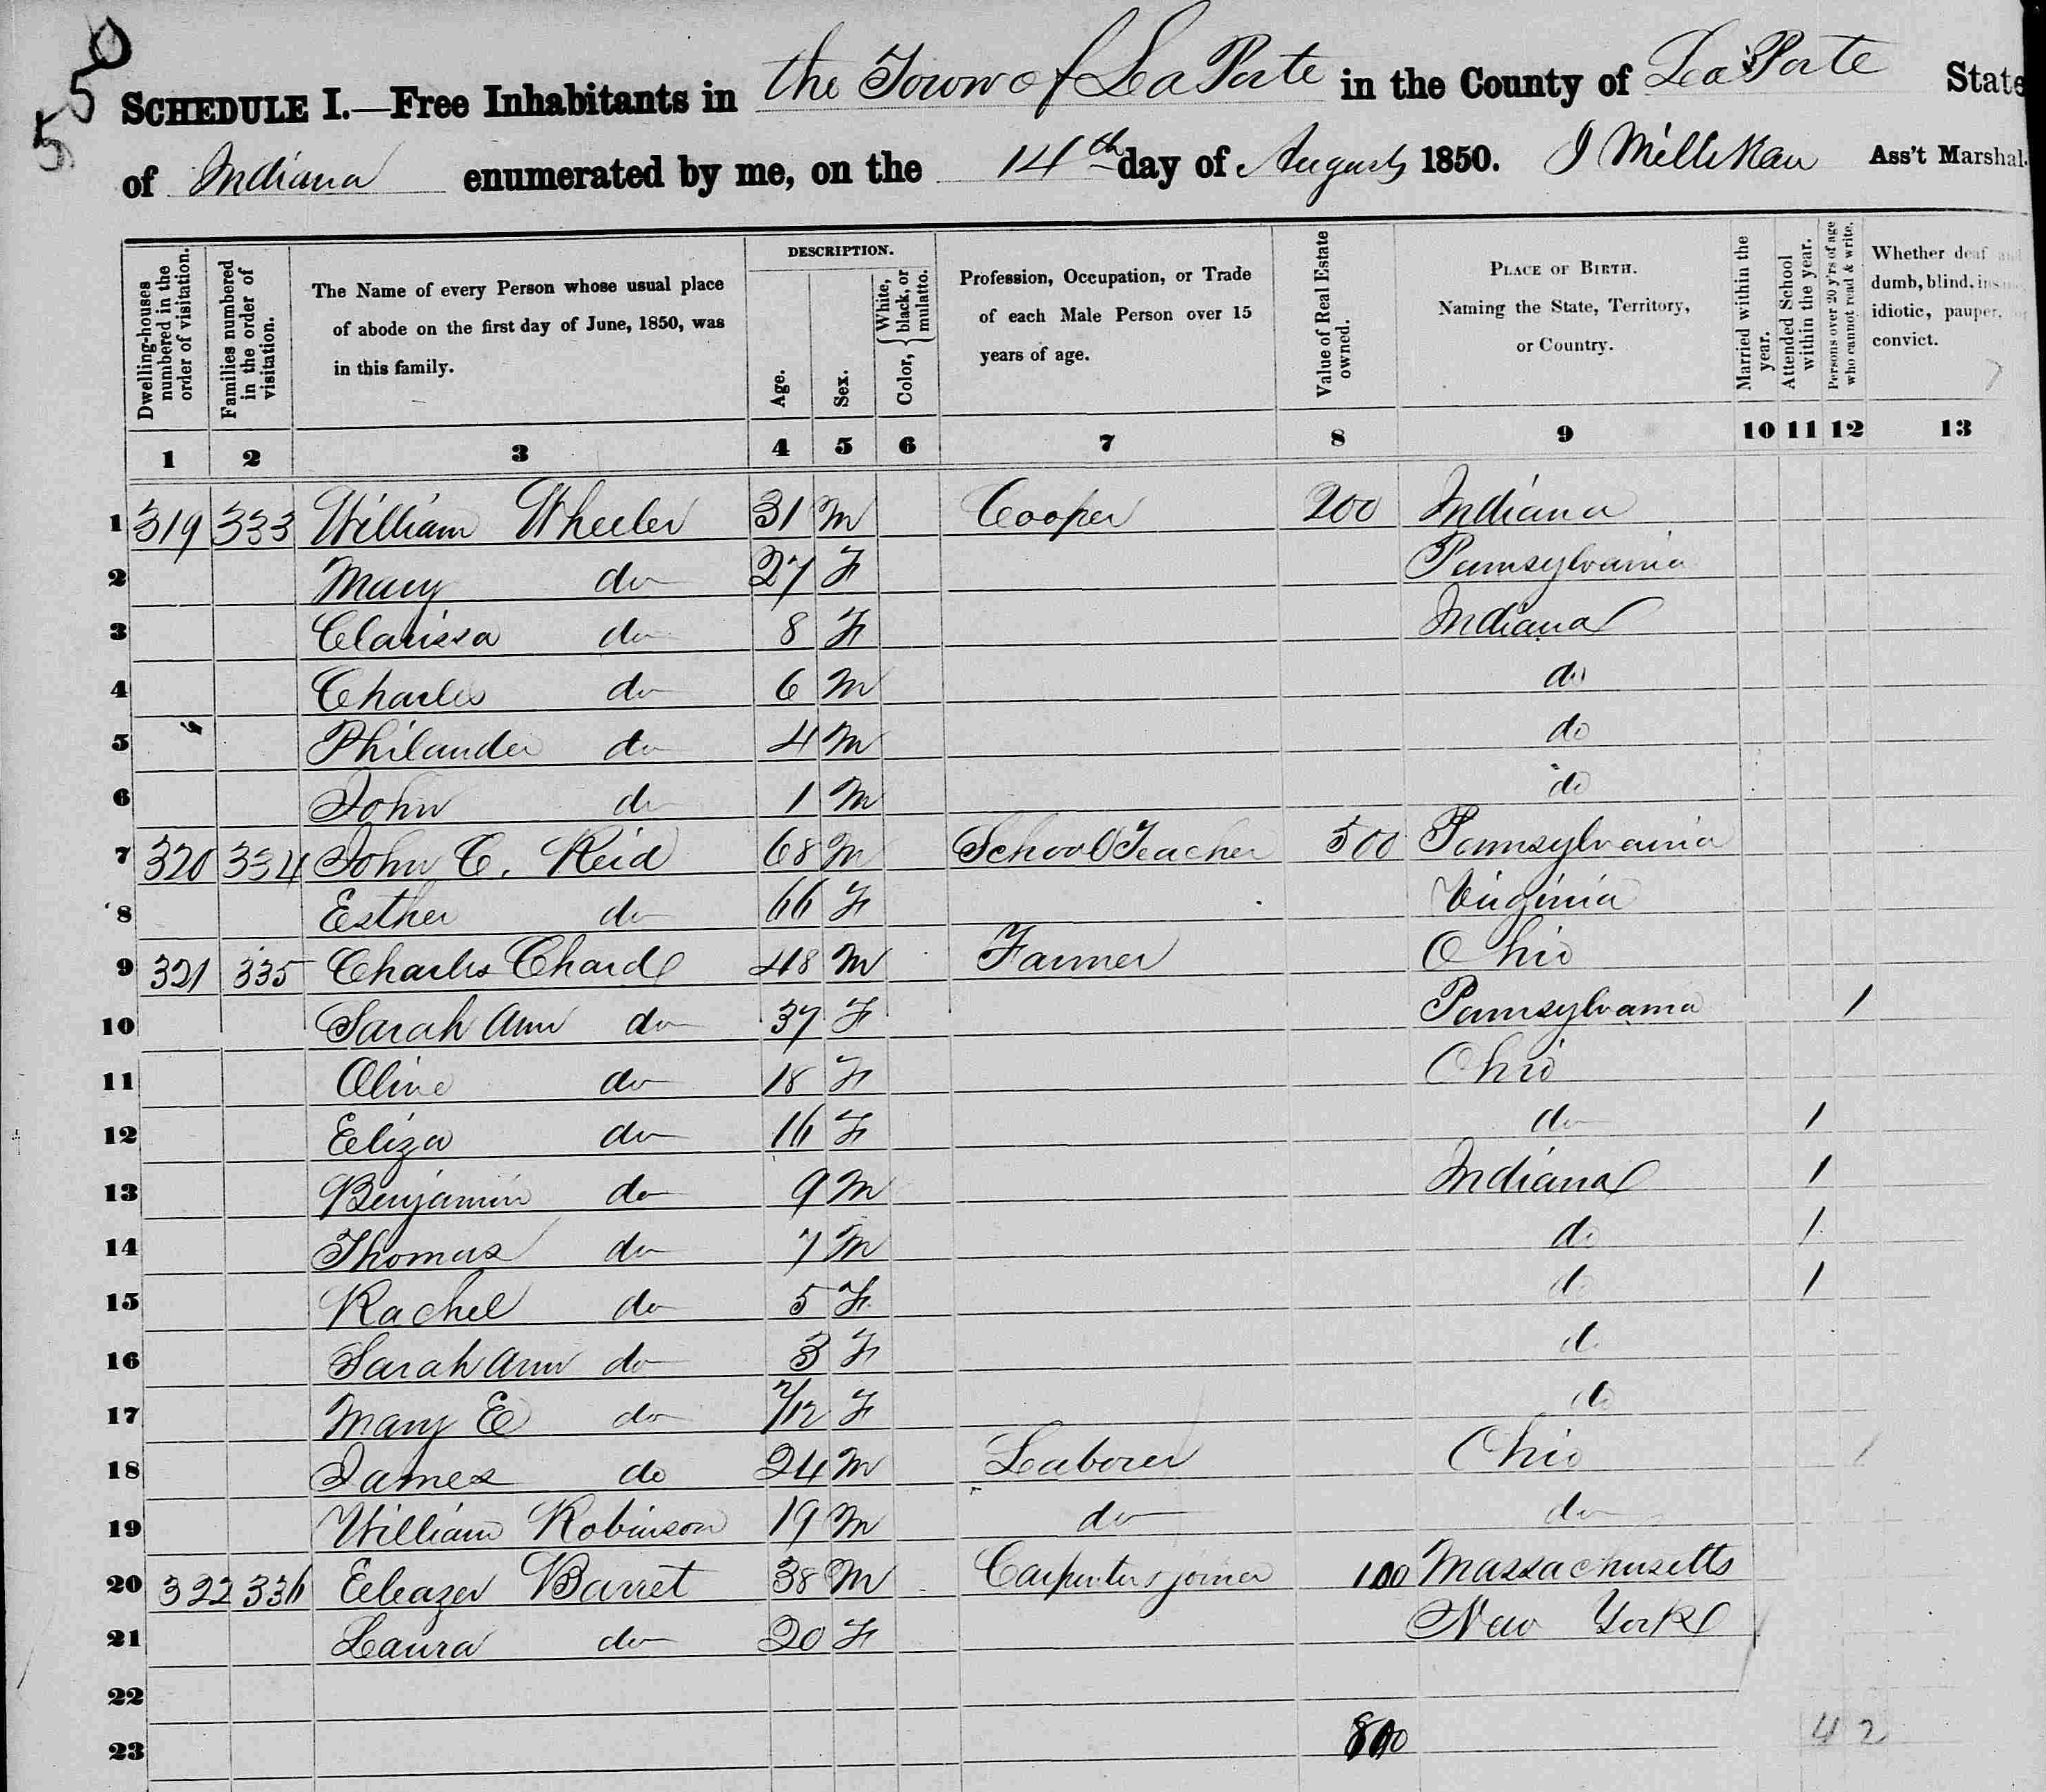 550
SCHEDULE I.—Free Inhabitants in the Town of La Porte in the County of La Porte State
of Indiana enumerated by me, on the 14th day of August 1850. J Millikan Ass't Marshal.
Dwelling-houses numbered in the order of visitation.
Families numbered in the order of visitation.
The Name of every Person whose usual place of abode on the first day of June, 1850, was in this family.
DESCRIPTION.
Age.
Sex.
Color, { White, black, or mulatto.
Profession, Occupation, or Trade of each Male Person over 15 years of age.
Value of Real Estate owned.
PLACE OF BIRTH. Naming the State, Territory, or Country.
Married within the year.
Attended School within the year.
Persons over 20 y'rs of age who cannot read & write.
Whether deaf and dumb, blind, insane, idiotic, pauper, or convict.
1 2 3 4 5 6 7 8 9 10 11 12 13
1 319 333 William Wheeler 31 M Cooper 200 Indiana
2 Mary do 27 F Pennsylvania
3 Clarissa do 8 F Indiana
4 Charles do 6 M do
5 Philander do 4 M do
6 John do 1 M do
7 320 334 John C. Reid 68 M School Teacher 500 Pennsylvania
8 Esther do 66 F Virginia
9 321 335 Charles Chard 48 M Farmer Ohio
10 Sarah Ann do 37 F Pennsylvania 1
11 Olive do 18 F Ohio
12 Eliza do 16 F do 1
13 Benjamin do 9 M Indiana 1
14 Thomas do 7 M do 1
15 Rachel do 5 F do 1
16 Sarah Ann do 3 F do
17 Mary E do 7/12 F do
18 James do 24 M Laborer Ohio /
19 William Robinson 19 M do do
20 322 336 Eleazer Barret 38 M Carpenter & joiner 100 Massachusetts
21 Laura do 20 F New York
22
23 800 4 2